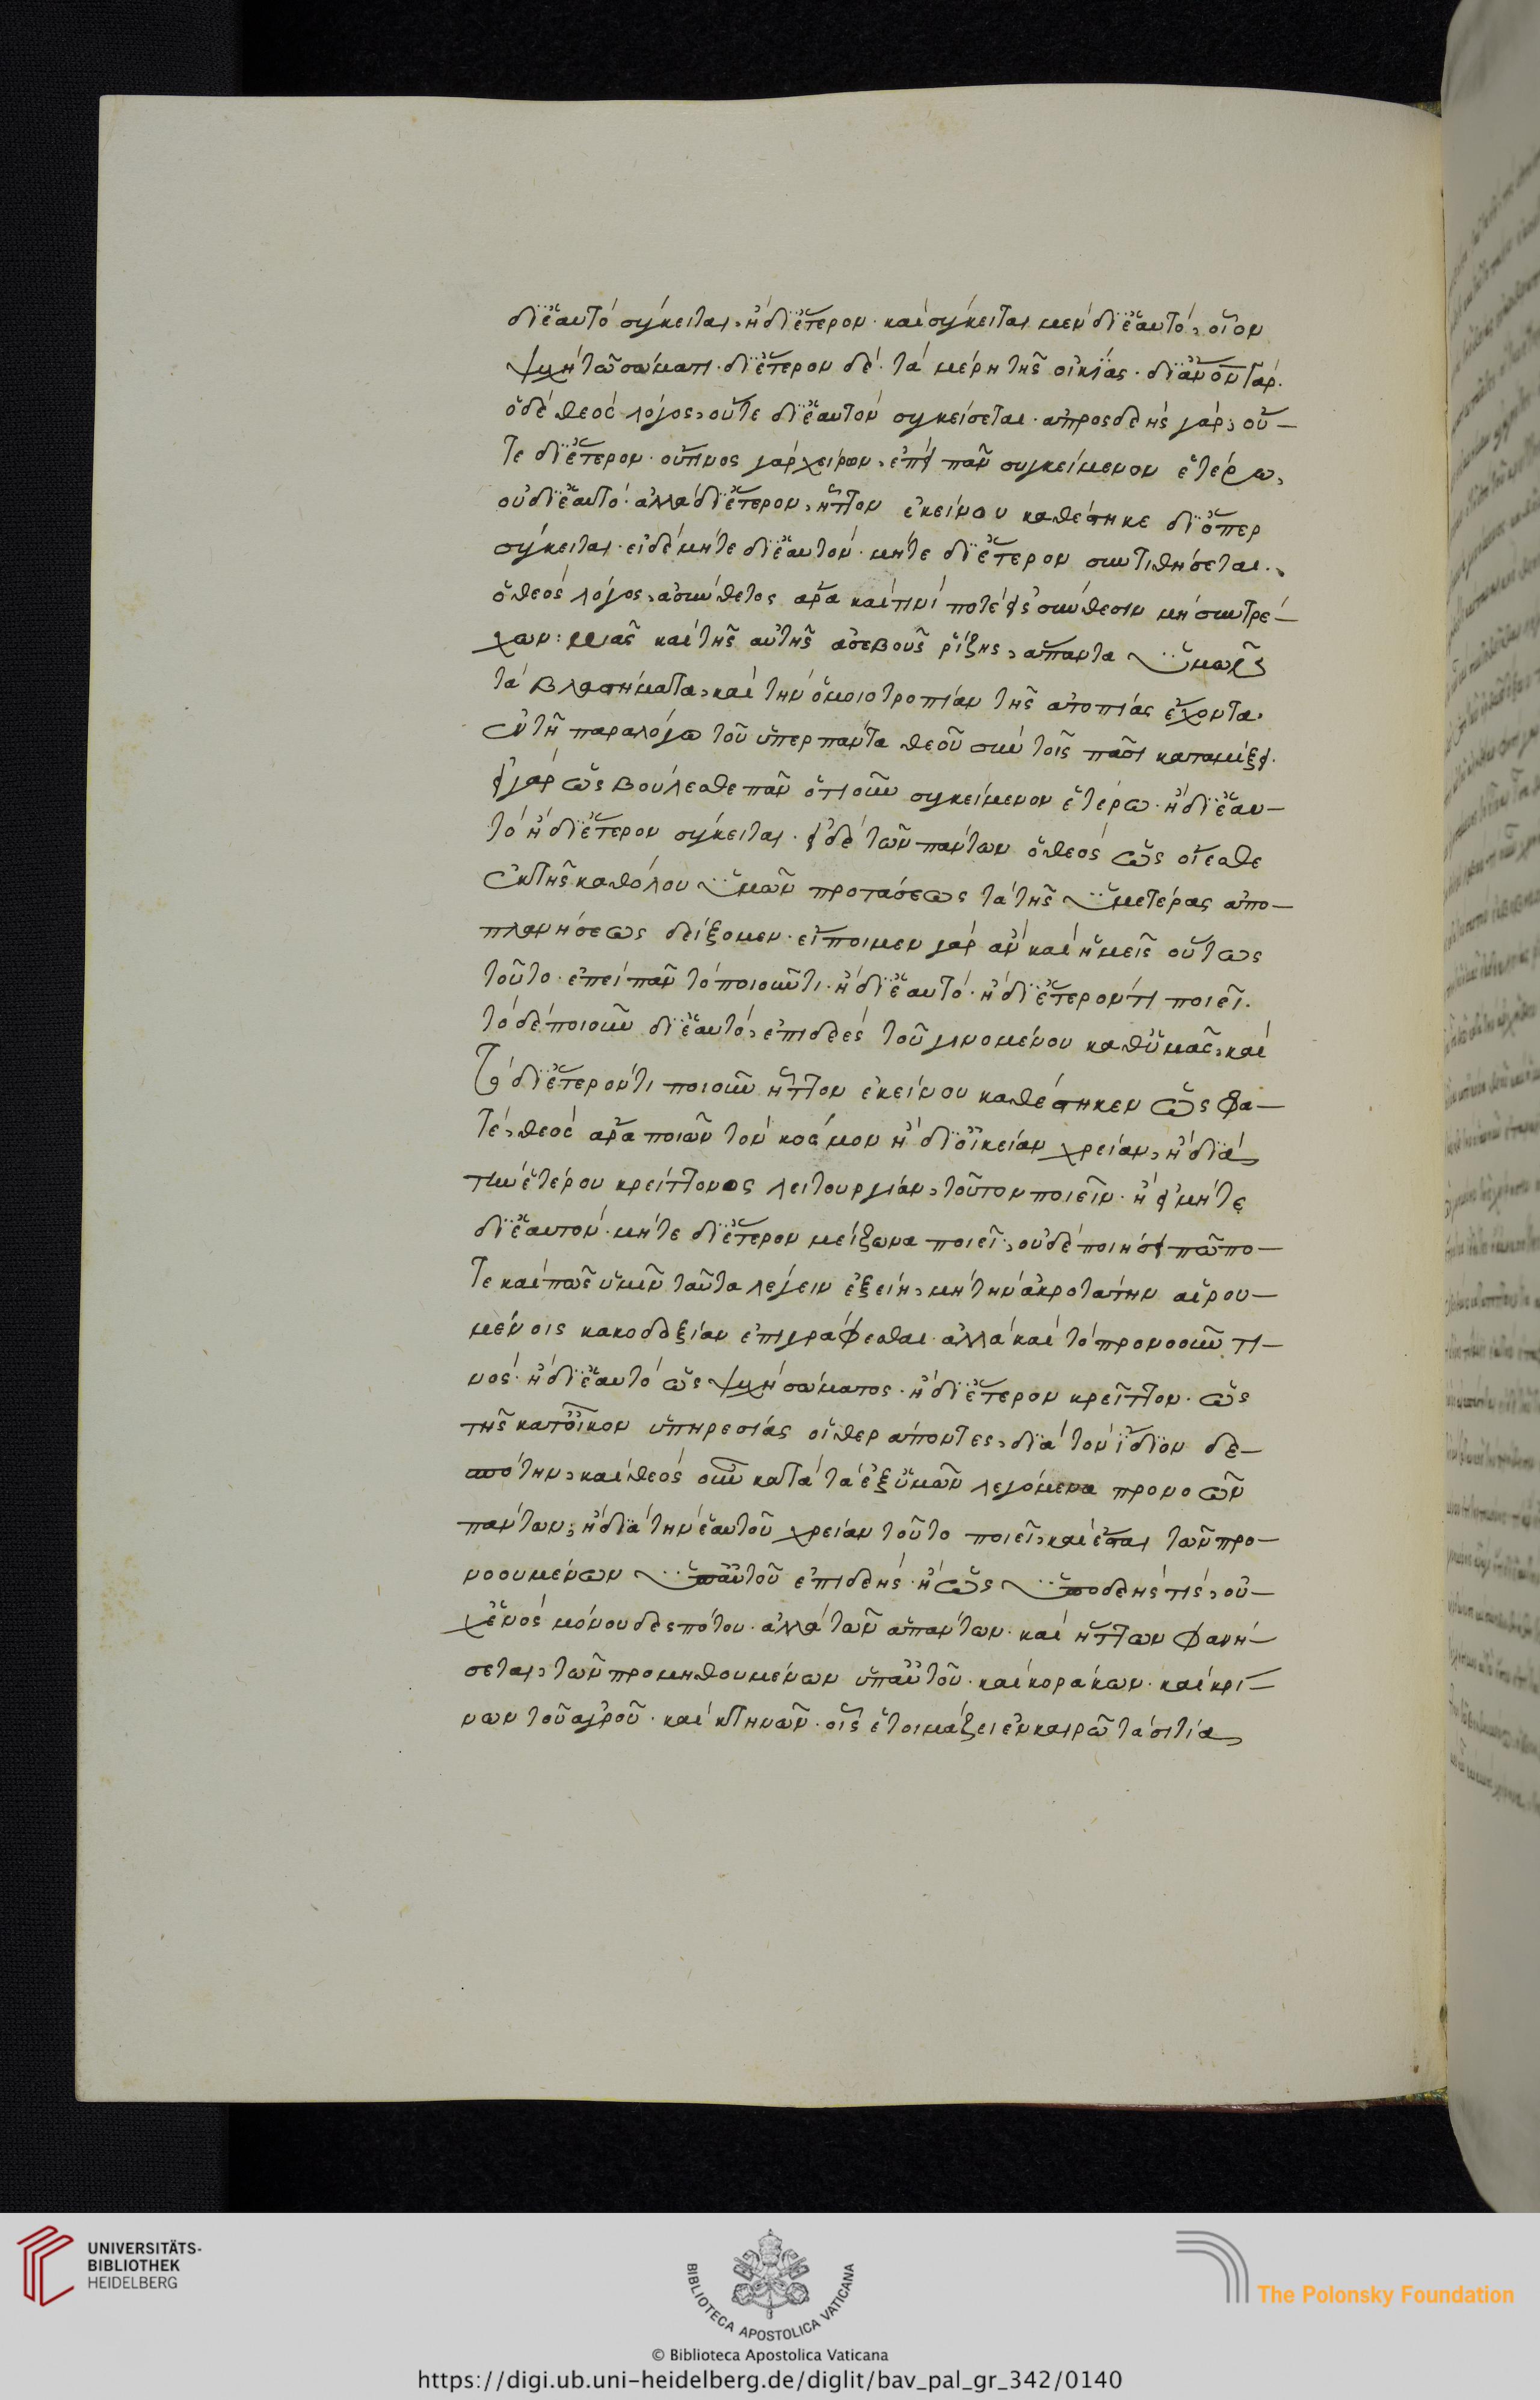 δι' ἑαυτὸ σύγκειται, ἢ δι' ἕτερον· καὶ σύγκειται μὲν δι' ἑαυτὸ, οἷον
ψυχὴ τῷ σώματι· δι' ἕτερον δὲ τὰ μέρη τῆς οἰκίας·
ὁ δὲ θεὸς λόγος, οὔτε δι' ἑαυτὸν συγκείσεται· ἀπροσδεὴς γάρ, οὔ-
τε δι' ἕτερον· οὔτινος γὰρ χείρων, ἐπεὶ πᾶν συγκείμενον ἑτέρω,
οὐ δι' ἑαυτὸ· ἀλλὰ δι' ἕτερον, ἧττον ἐκείνου καθέστηκε δι' ὅπερ
σύγκειται· εἰ δὲ μήτε δι' ἑαυτὸν· μήτε δι' ἕτερον συντιθήσεται.
ὁ θεὸς λόγος, ἀσύνθετος ἄρα καὶ τινί ποτε εἰς σύνθεσιν μὴ συντρέ-
χων: μιᾶς καὶ τῆς αὐτῆς ἀσεβοῦς ῥίζης, ἅπαντα ὑμῶν
τὰ βλαστήματα, καὶ τὴν ὁμοιοτροπίαν τῆς ἀτοπίας ἔχοντα.
ἐν τῇ παραλόγω τοῦ ὑπερ πάντα θεοῦ σὺν τοῖς πᾶσι καταμίξει.
εἰ γὰρ ὡς βούλεσθε πᾶν ὁτιοῦν συγκείμενον ἑτέρω· ἢ δι' ἑαυ-
τὸ ἢ δι' ἕτερον σύγκειται· εἷς δὲ τῶν πάντων ὁ θεὸς ὡς οἴεσθε
ἐκ τῆς καθόλου ὑμῶν προτάσεως τὰ τῆς ὑμετέρας ἀπο-
πλανήσεως δείξομεν· εἴποιμεν γὰρ ἂν καὶ ἡμεῖς οὕτως
τοῦτο· ἐπεὶ πᾶν τὸ ποιοῦν τι· ἢ δι' ἑαυτὸ· ἢ δι' ἕτερόν τι ποιεῖ.
τὸ δὲ ποιοῦν δι' ἑαυτὸ, ἐπιδεὲς τοῦ γινομένου καθ' ὑμᾶς, καὶ
τὸ δι' ἕτερόν τι ποιοῦν ἧττον ἐκείνου καθέστηκεν ὥς φα-
τέ, θεὸς ἄρα ποιῶν τὸν κόσμον ἢ δι' οἰκείαν χρείαν, ἢ διά
τινος ἑτέρου κρείττονος λειτουργίαν, τοῦτον ποιεῖν· ἢ εἰ μήτε
δι' ἑαυτὸν· μήτε δι' ἕτερον μείζονα ποιεῖ, οὐδὲ ποιήσει πώπο-
τε καὶ πῶς ὑμῖν ταῦτα λέγειν ἐξείη, μὴ τὴν ἀκροτάτην αἱρου-
μένοις κακοδοξίαν ἐπιγράφεσθαι· ἀλλὰ καὶ τὸ προνοοῦν τι-
νος· ἢ δι' ἑαυτὸ ὡς ψυχὴ σώματος· ἢ δι' ἕτερον κρεῖττον· ὡς
τῆς κατ' οἶκον ὑπηρεσίας οἱ θεράποντες, διὰ τὸν ἴδιον δε-
σπότην, καὶ θεὸς οὖν κατὰ τὰ ἐξ ὑμῶν λεγόμενα προνοῶν
πάντων, ἢ διὰ τὴν ἑαυτοῦ χρείαν τοῦτο ποιεῖ, καὶ ἔσται τῶν προ-
νοουμένων ὑπ' αὐτοῦ ἐπιδεὴς· ἢ ὡς ὑποδεής τις, οὐ-
χ' ἑνὸς μόνου δεσπότου· ἀλλὰ τῶν ἁπάντων· καὶ ἥττων φανή-
σεται, τῶν προμηθουμένων ὑπ' αὐτοῦ· καὶ κοράκων· καὶ κρί-
νων τοῦ ἀγροῦ· καὶ κτηνῶν· οἷς ἑτοιμάζει ἐν καιρῶ τὰ σιτία
UNIVERSITÄTS-
BIBLIOTHEK
HEIDELBERG
BIBLIOTECA APOSTOLICA VATICANA
The Polonsky Foundation
© Biblioteca Apostolica Vaticana
https://digi.ub.uni-heidelberg.de/diglit/bav_pal_gr_342/0140